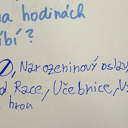 na hodinách
líbí?
, Narozeninový oslav
d Race, Učebnice, V
hrou